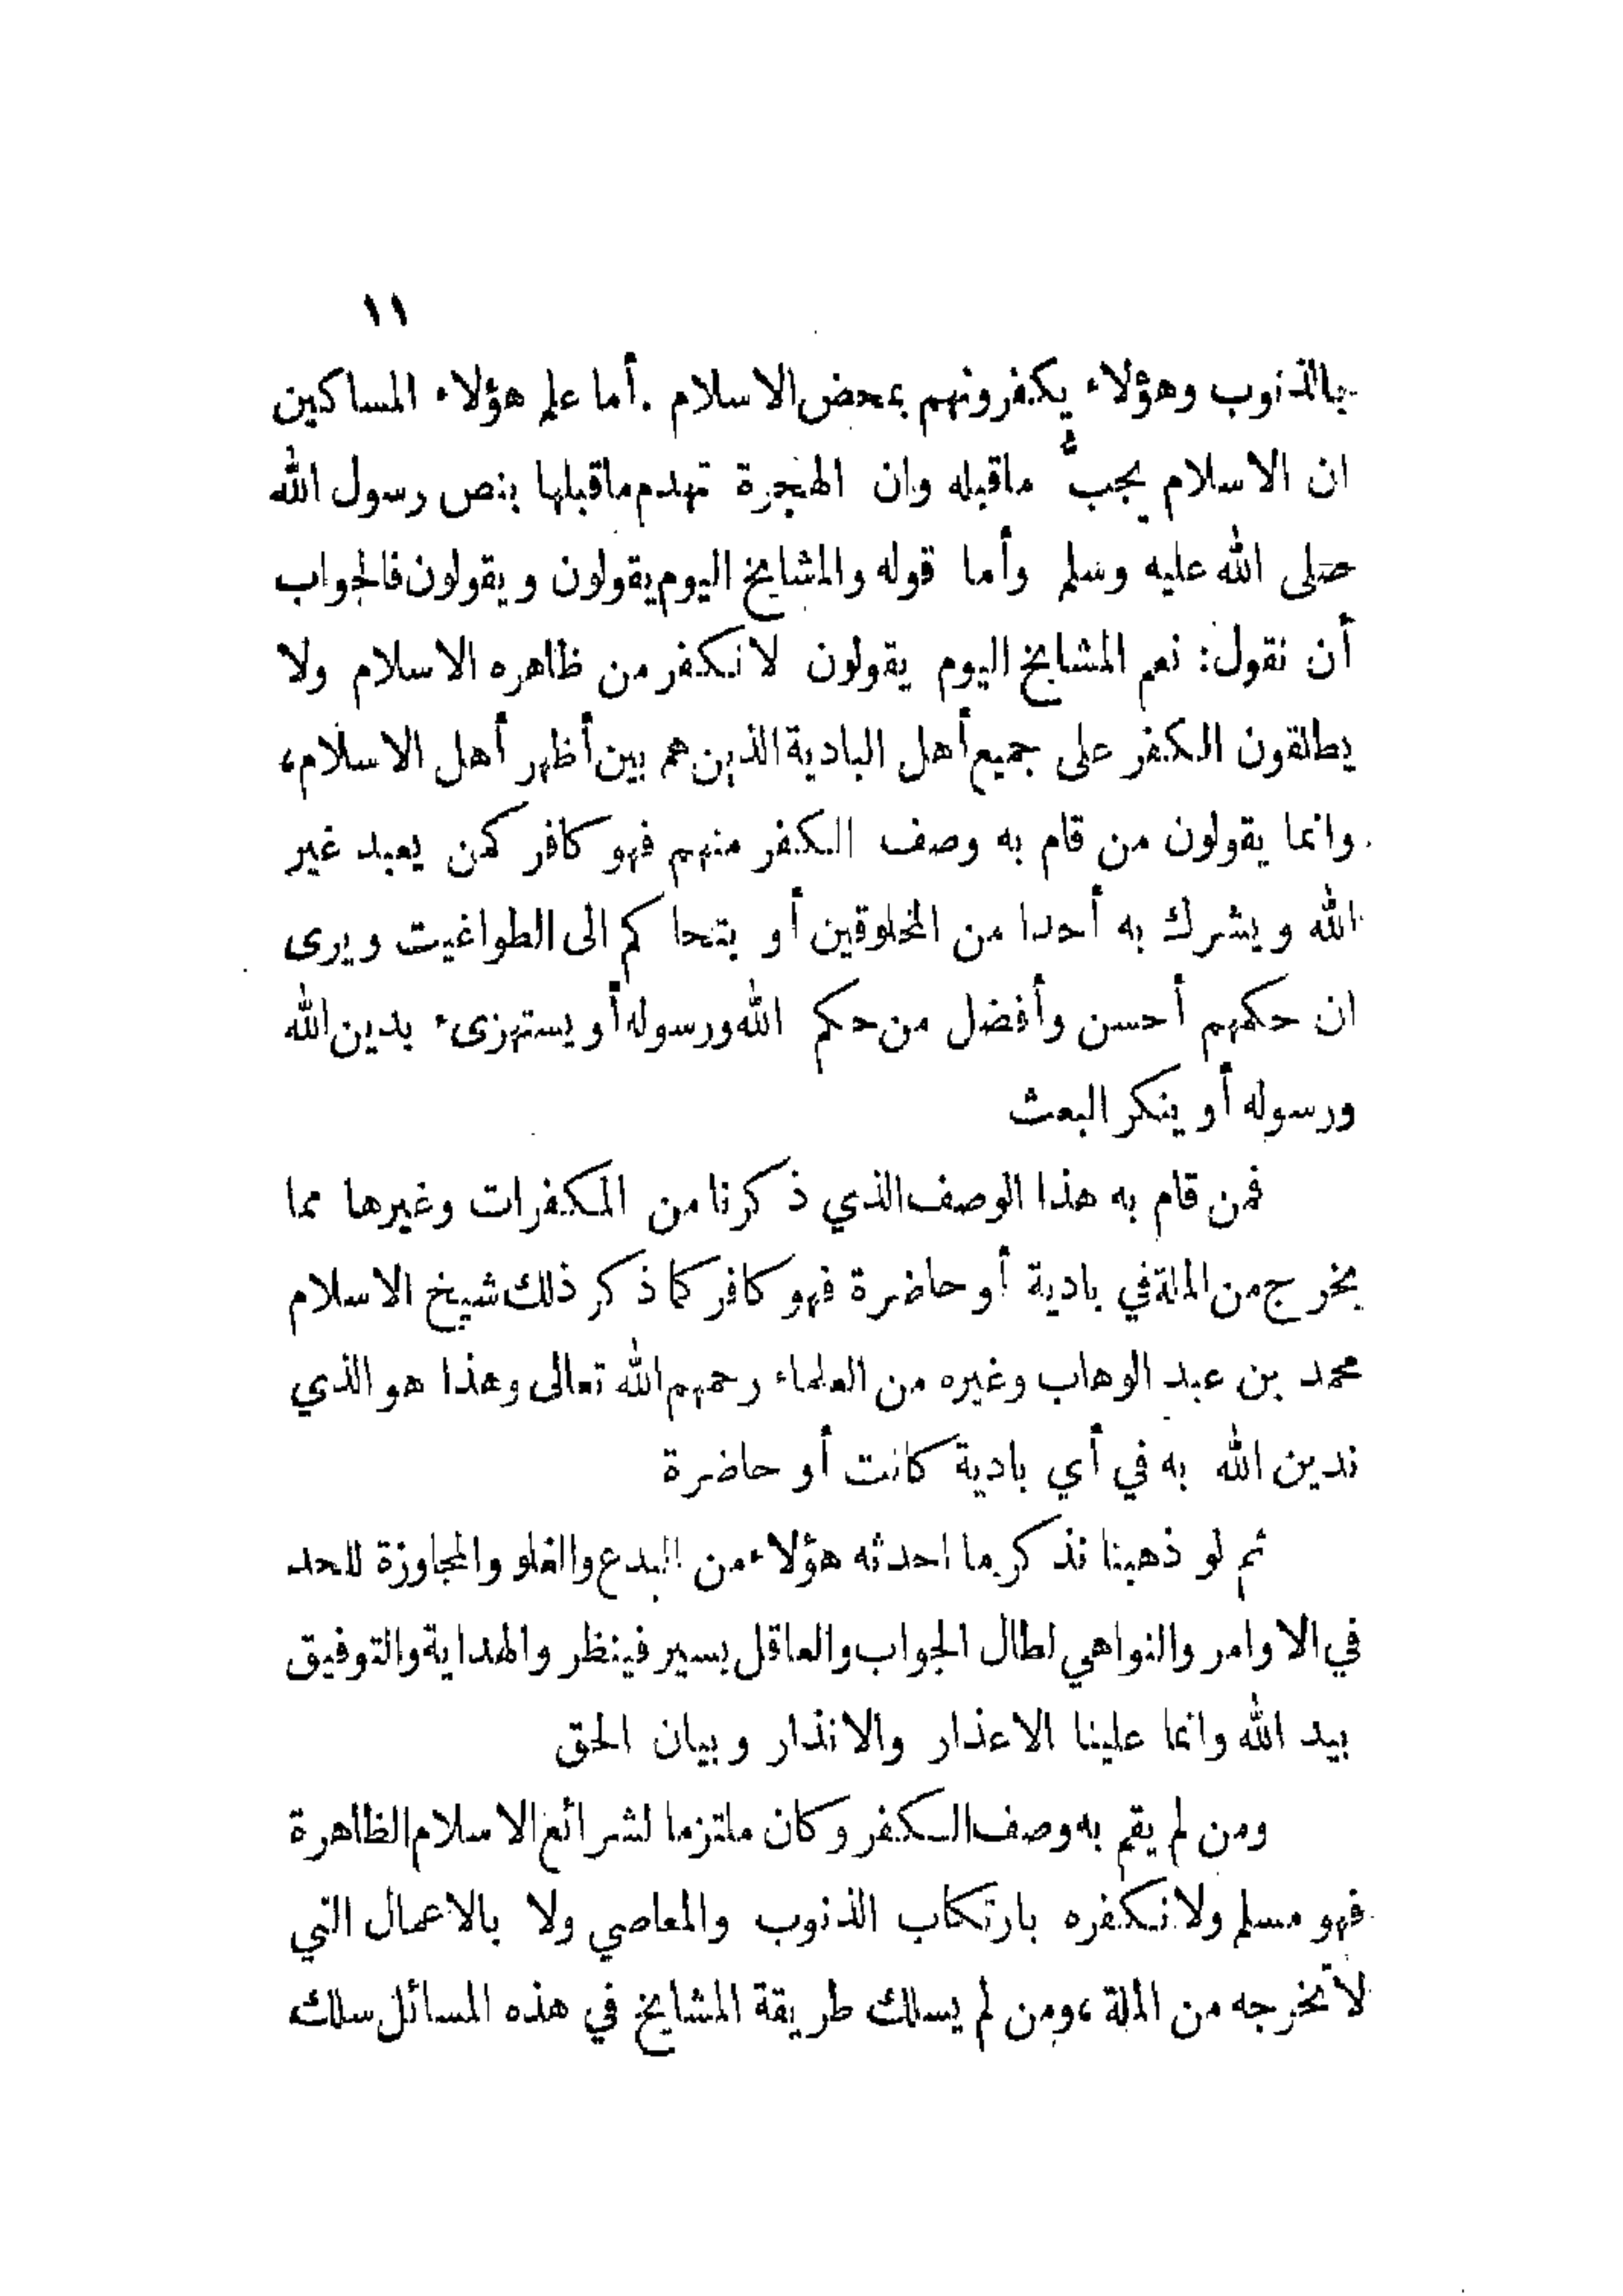 ١١
بالذنوب وهؤلاء يكفرونهم بمحض الاسلام . أما علم هؤلاء المساكين
ان الاسلام يجبُّ ماقبله وان الهجرة تهدم ماقبلها بنص رسول الله
صلى الله عليه وسلم وأما قوله والمشايخ اليوم يقولون ويقولون فالجواب
أن نقول: نعم المشايخ اليوم يقولون لانكفر من ظاهره الاسلام ولا
يطلقون الكفر على جميع أهل البادية الذين هم بين أظهر أهل الاسلام،
وانما يقولون من قام به وصف الكفر منهم فهو كافر كمن يعبد غير
الله ويشرك به أحدا من المخلوقين أو يتحاكم الى الطواغيت ويرى
ان حكمهم أحسن وأفضل من حكم الله ورسوله أو يستهزىء بدين الله
ورسوله أو ينكر البعث
فمن قام به هذا الوصف الذي ذكرنا من المكفرات وغيرها مما
يخرج من الملة في بادية أو حاضرة فهو كافر كما ذكر ذلك شيخ الاسلام
محمد بن عبد الوهاب وغيره من العلماء رحمهم الله تعالى وهذا هو الذي
ندين الله به في أي بادية كانت أو حاضرة
ثم لو ذهبنا نذكر ما احدثه هؤلاء من البدع والغلو والمجاوزة للحد
في الاوامر والنواهي لطال الجواب والعاقل يسير فينظر والهداية والتوفيق
بيد الله وانما علينا الاعذار والانذار وبيان الحق
ومن لم يقم به وصف الكفر وكان ملتزما لشرائع الاسلام الظاهرة
فهو مسلم ولا نكفره بارتكاب الذنوب والمعاصي ولا بالاعمال التي
لاتخرجه من الملة ،ومن لم يسلك طريقة المشايخ في هذه المسائل سلك